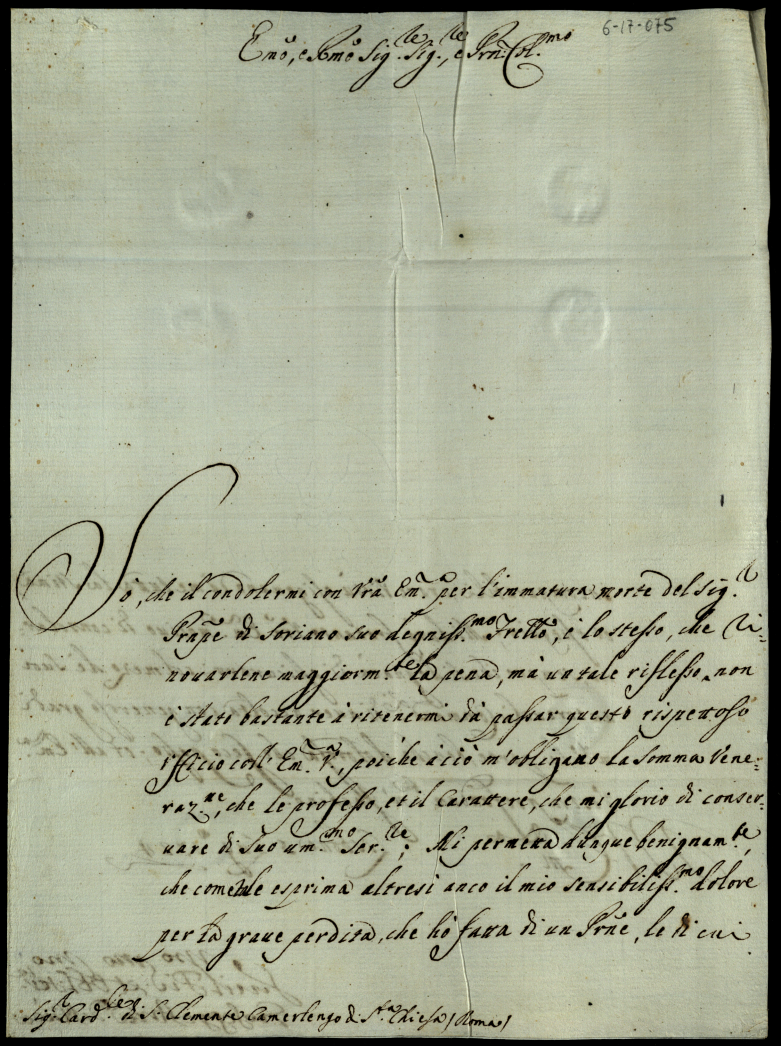 6-17-075
Emo, e Rmo Sig.re Sig.re, e Prñ Col.mo
Sò, che il condolermi con Vrã Em.a per l'immatura morte del Sig.r
Prñpe di Soriano suo degniss.mo Frello, è lo stesso, che ri-
nouarlene maggiorm.te la pena, mà un tale riflesso non
è stato bastante à ritenermi dà passar questo rispettoso
vfficio coll' Em.a V.a, poiche a ciò m'obligano la somma Vene-
raz.ne, che le professo, et il Carattere, che mi glorio di conser-
uare di suo um.mo Ser.re; Mi permetta dunque benignam.te,
che come tale esprima altresi anco il mio sensibiliss.mo dolore
per la graue perdita, che hò fatta di un Prñe, le di cui
Sig.r Card.le di S. Clemente Camerlengo di S.ta Chiesa / Roma /